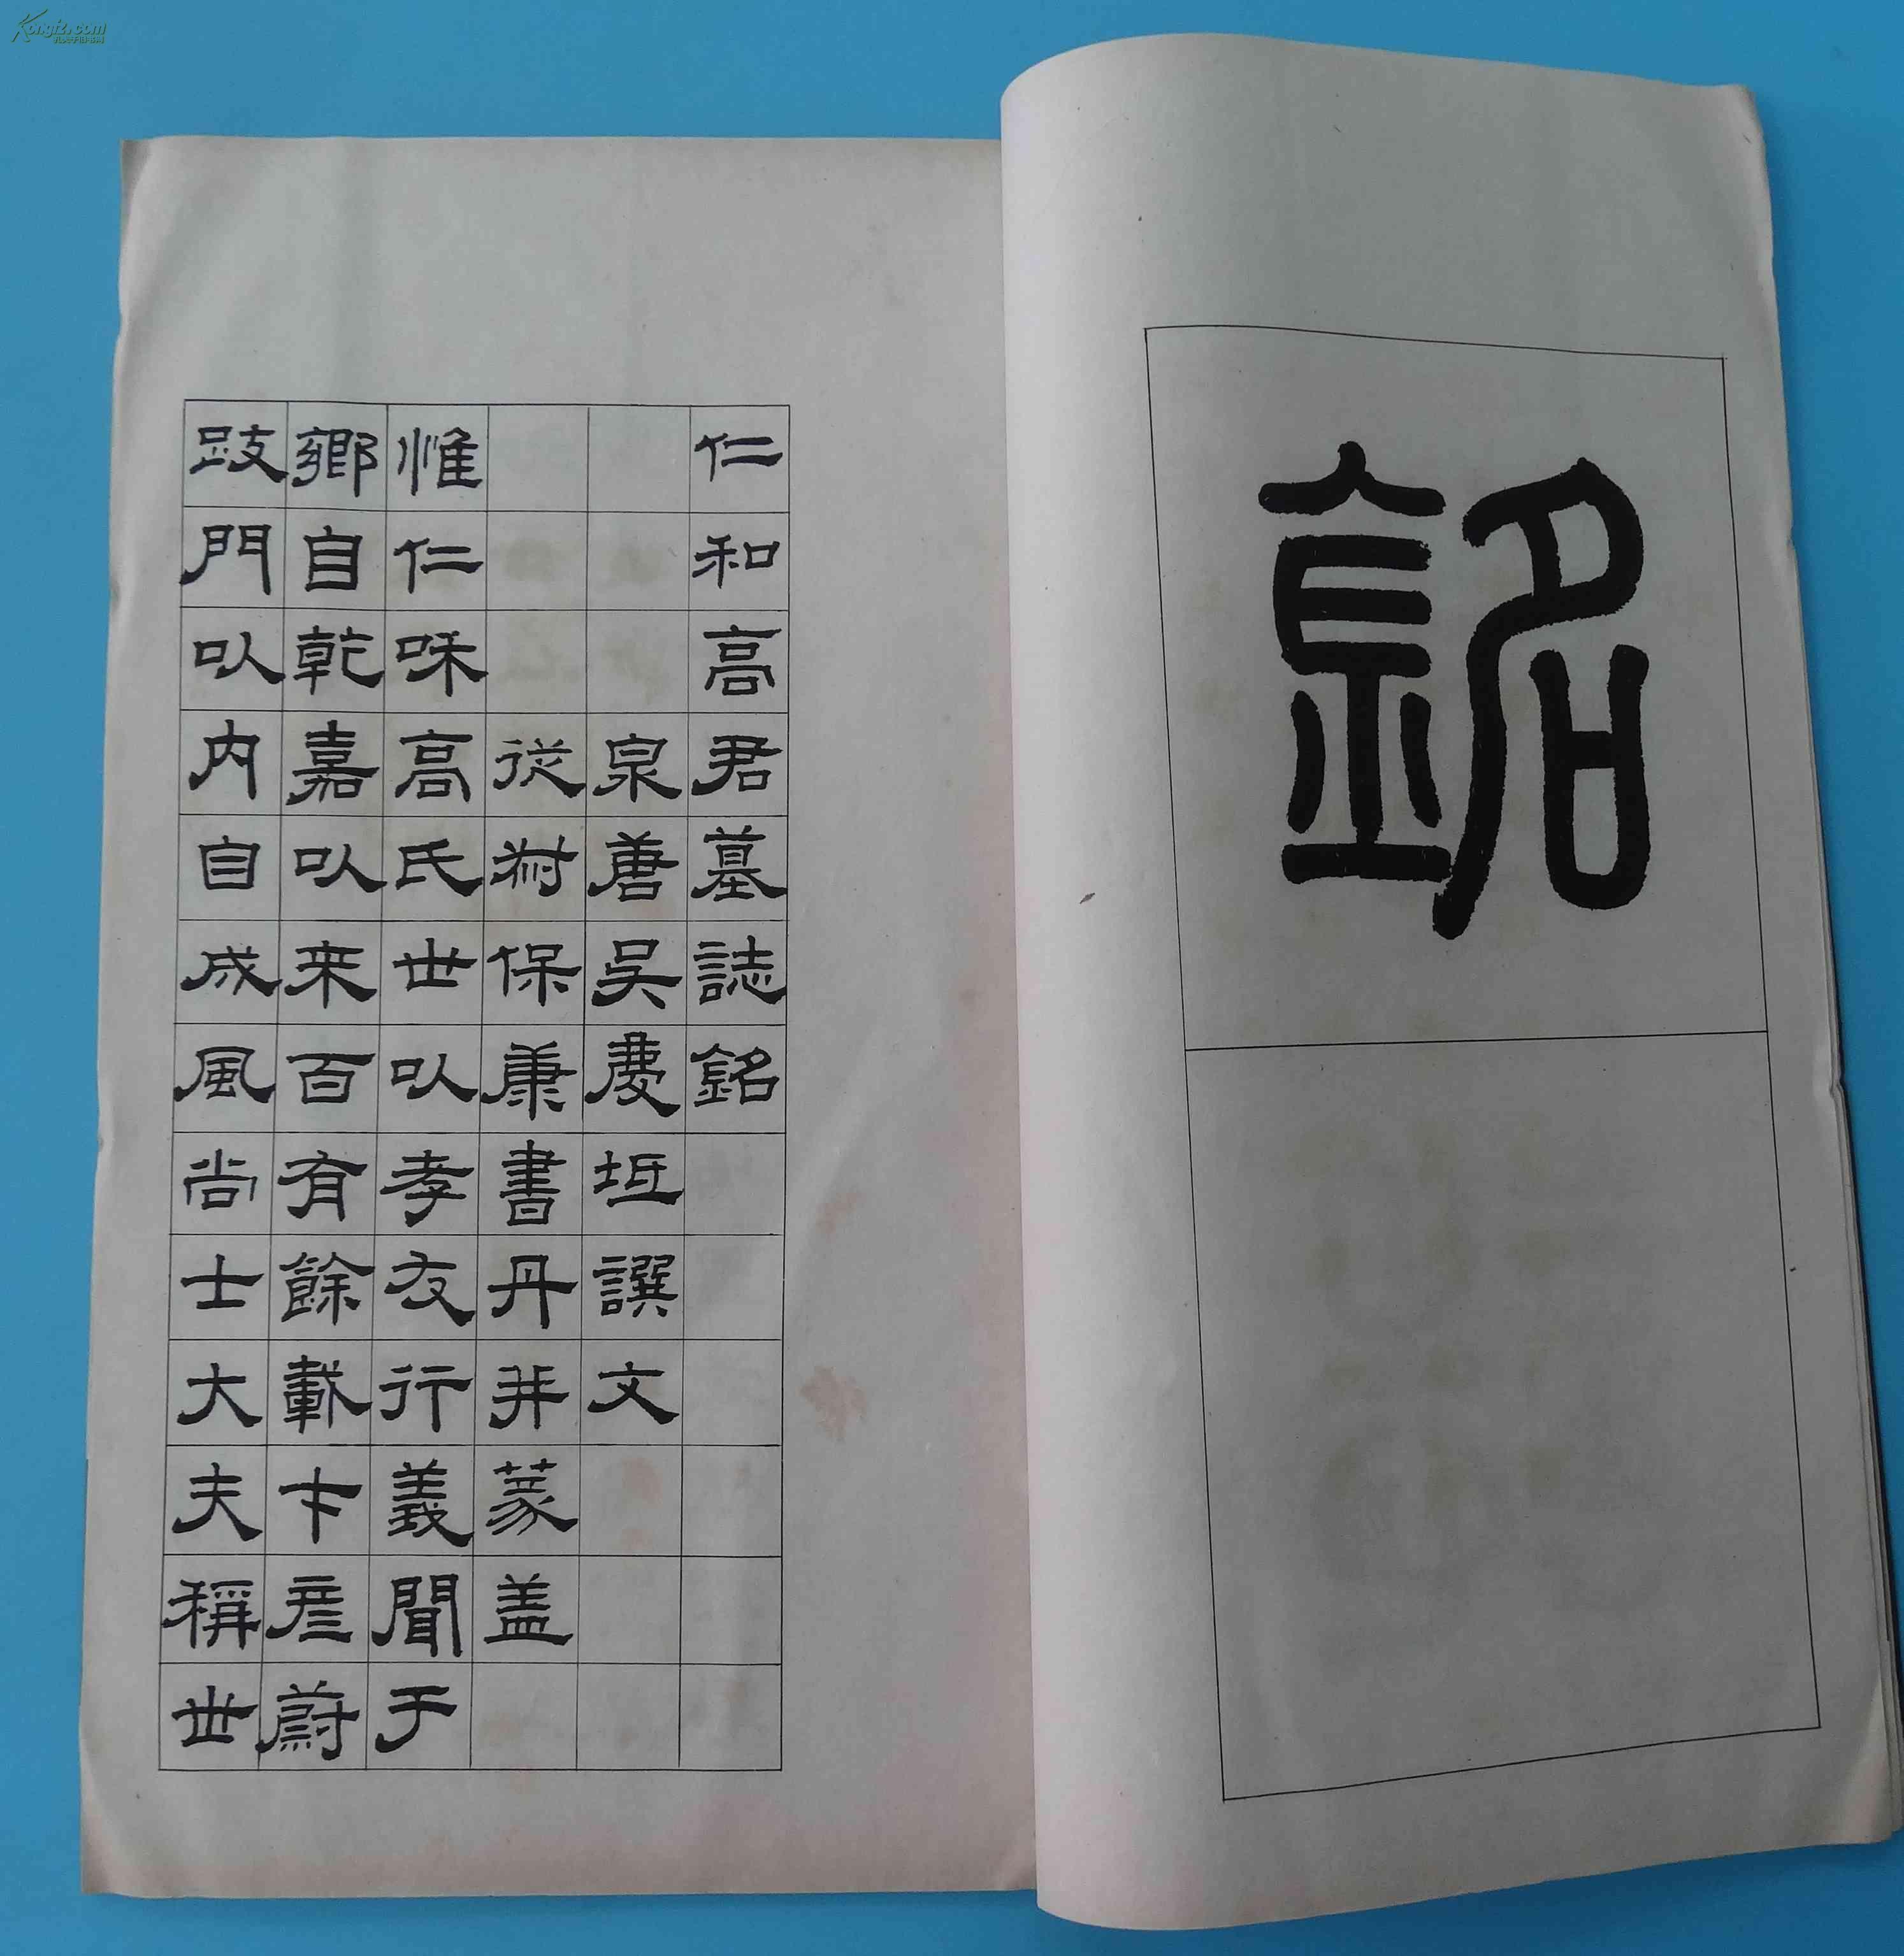 Kongfz.com
孔夫子旧书网
銘
仁和高君墓誌銘
泉唐吳慶坻譔文
從叔保康書丹并篆盖
惟仁和高氏世以孝友行義聞于
鄉自乾嘉以来百有餘載才彦蔚
跂門以内自成風尚士大夫稱世